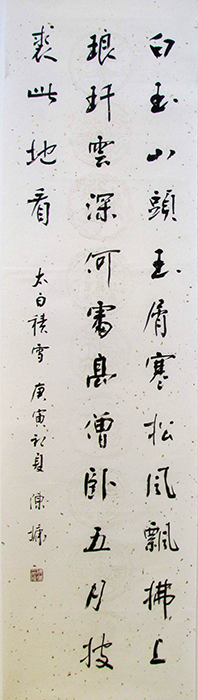 白玉山頭玉屑寒松風飄拂上
琅玕雲深何處高僧卧五月披
裘此地看
太白積雪 庚寅初夏 陳㯋